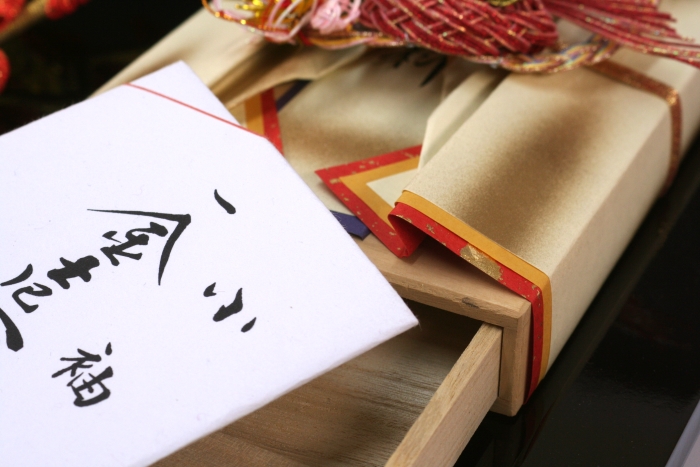 小袖
一金壱